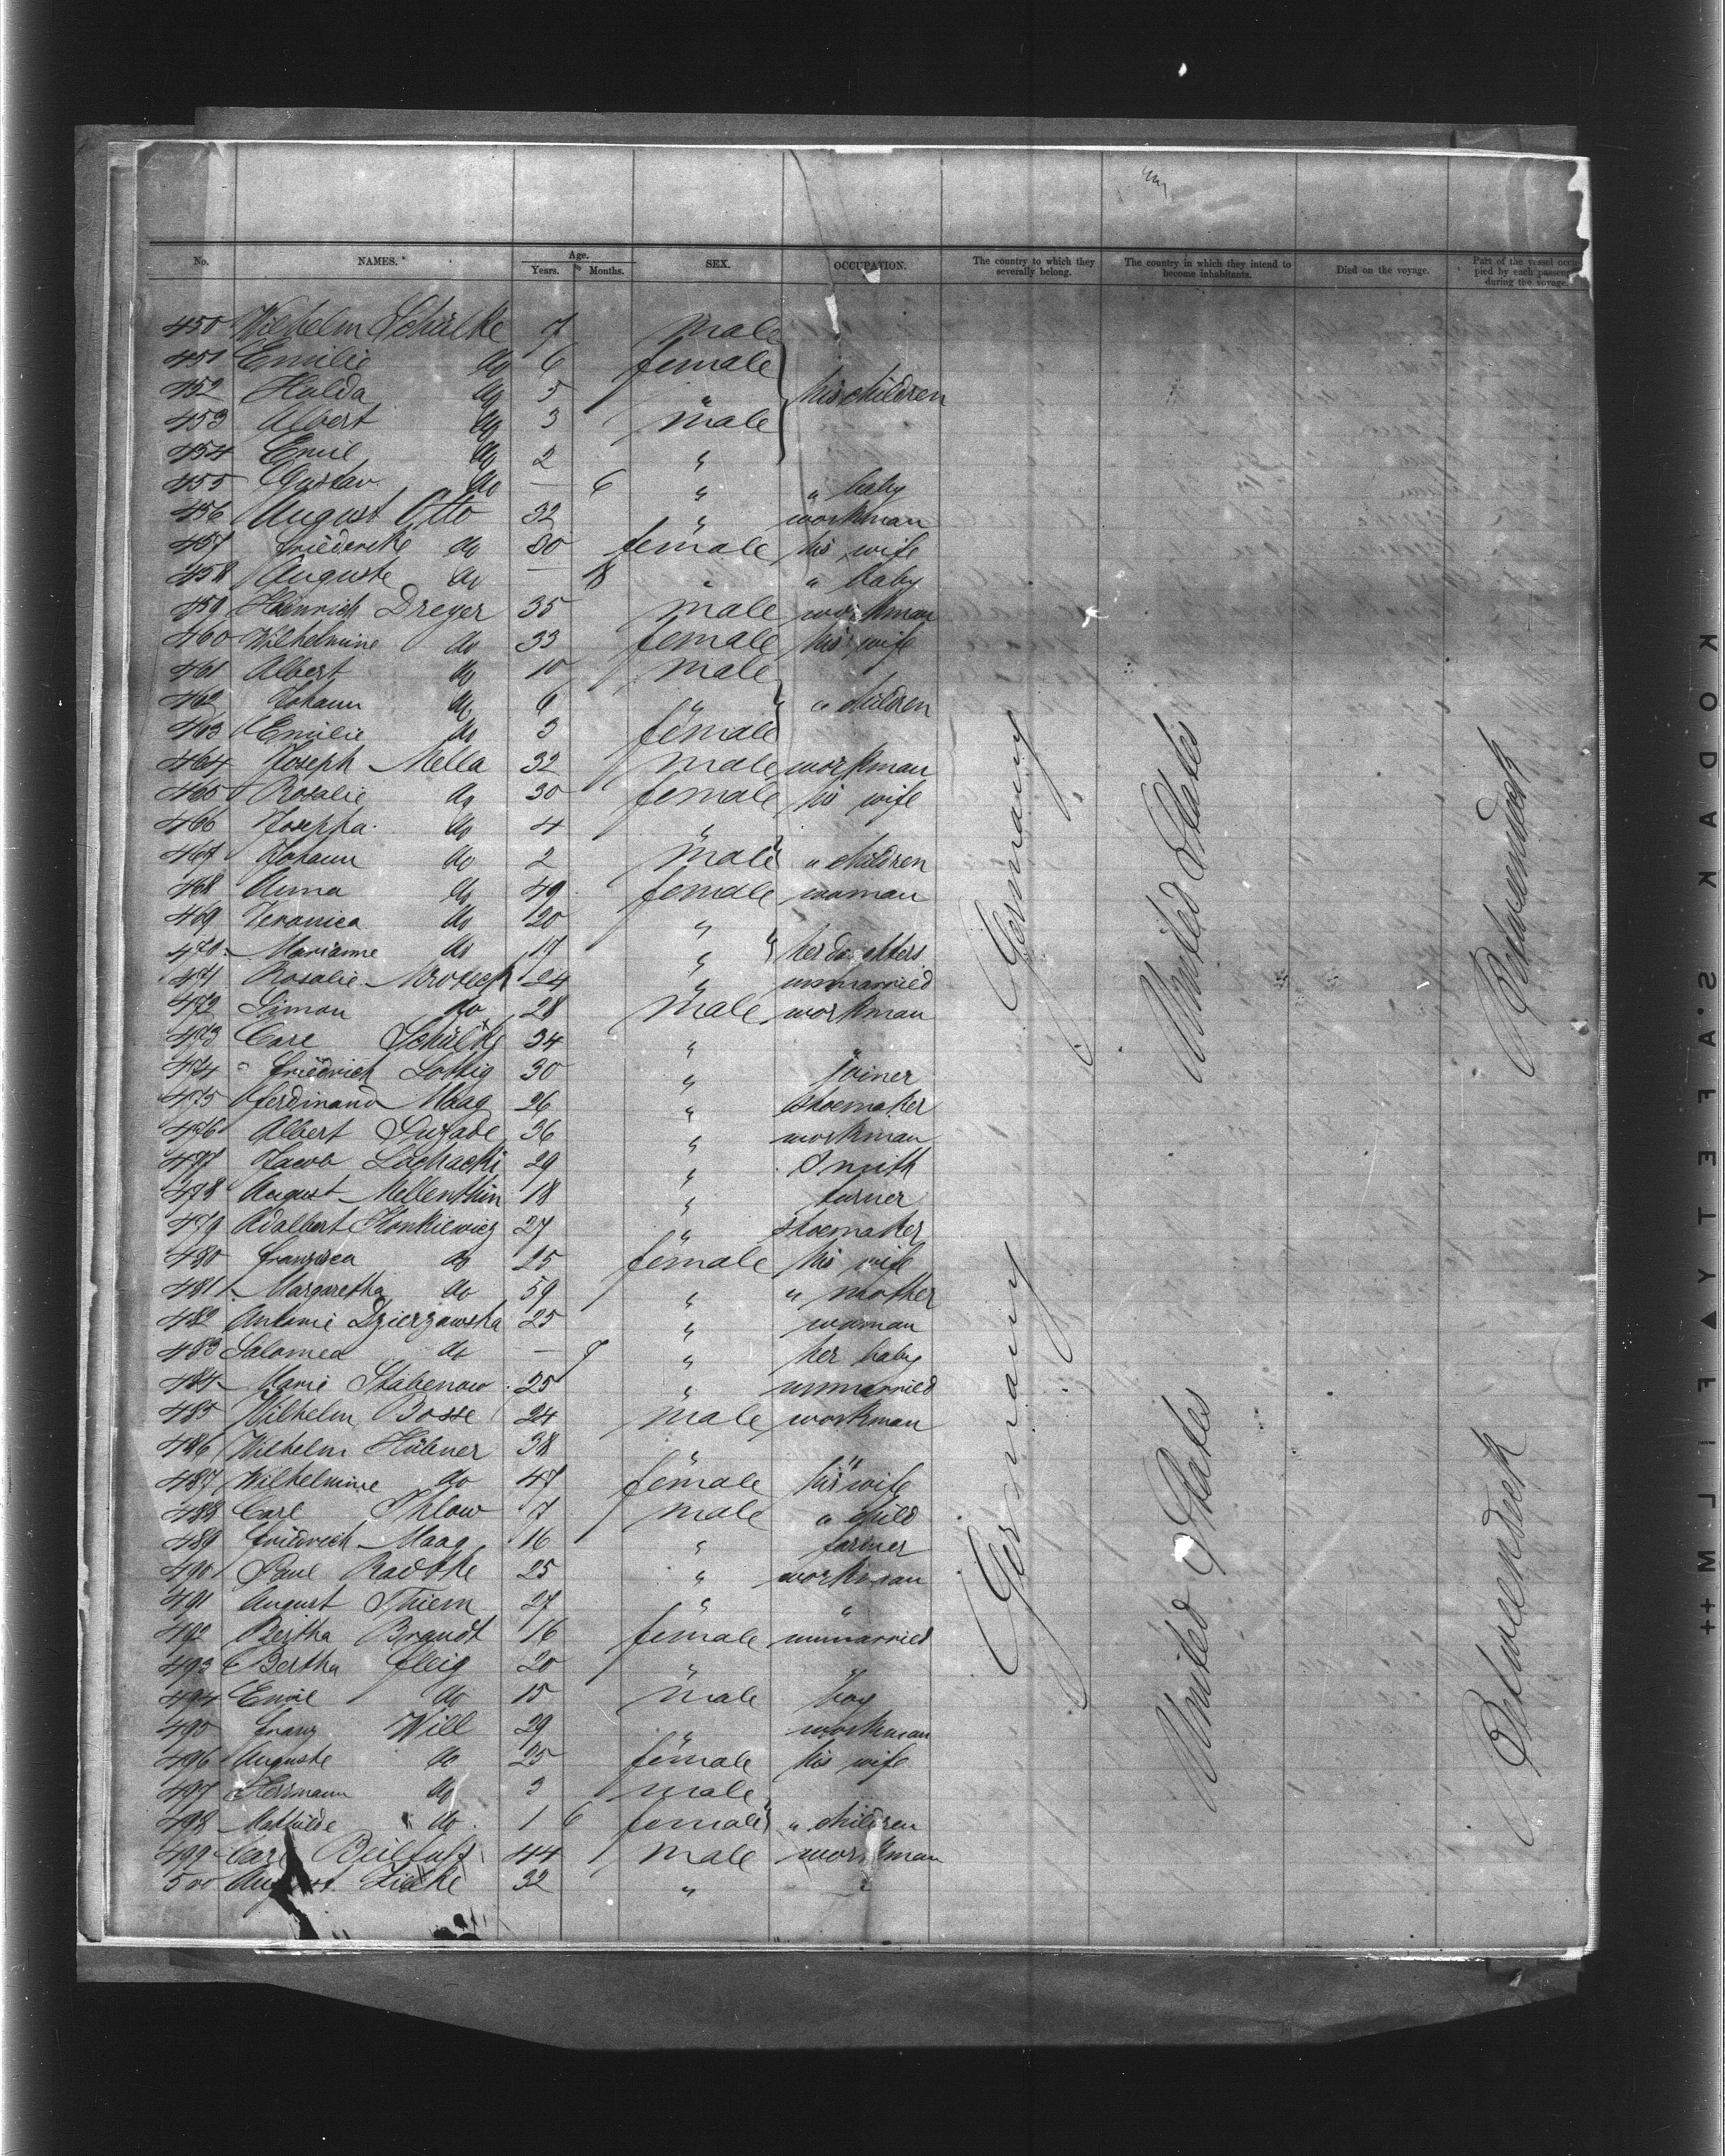 No. NAMES. Age. Years. Months. SEX. OCCUPATION. The country to which they severally belong. The country in which they intend to become inhabitants. Died on the voyage. Part of the vessel occupied by each passenger during the voyage.
450 Wilhelm Schülke 7 male
451 Emilie do 6 female
452 Hulda do 5 " his children
453 Albert do 3 male
454 Emil do 2 "
455 Gustav do — 6 " " baby
456 August Otto 32 " workman
457 Friedericke do 30 female his wife
458 Auguste do — " " baby
459 Heinrich Dreyer 35 male workman
460 Wilhelmine do 33 female his wife
461 Albert do 10 male
462 Johann do 6 " " children
463 Emilie do 3 female
464 Joseph Mella 32 male workman
465 Rosalie do 30 female his wife
466 Josepha do 4 "
467 Johann do 2 male " children
468 Anna do 49 female woman
469 Veronica do 20 "
470 Marianne do 17 " her daughters
471 Rosalie 24 " unmarried
472 Simon do 28 male workman
473 Carl Schülke 34 " "
474 Friedrich Lottig 30 " joiner
475 Ferdinand Maag 26 " shoemaker
476 Albert 36 " workman
477 Jacob 29 " Smith
478 August Mellenthin 18 " turner
479 Adalbert Honkiewicz 27 " shoemaker
480 Franzisca do 25 female his wife
481 Margaretha do 59 " " mother
482 Antonie Dzierzawska 25 " woman
483 Salomea do — 9 " her baby
484 Marie Stabenow 25 " unmarried
485 Wilhelm Bosse 24 male workman
486 Wilhelm Hübner 38 " "
487 Wilhelmine do 47 female his wife
488 Carl Ihlow 7 male " child
489 Friedrich Maag 16 " farmer
490 Paul Radtke 25 " workman
491 August Thiem 27 " "
492 Bertha Brandt 16 female unmarried
493 Bertha Fleig 20 " "
494 Emil do 15 male boy
495 Franz Will 29 " workman
496 Auguste do 25 female his wife
497 Hermann do 3 male
498 Mathilde do 1 6 female " children
499 Carl Beilfuss 44 male workman
500 August 32 " "
Germany
United States
Betweendeck
Germany
United States
Betweendeck
KODAK S.A.FETY▲FILM++